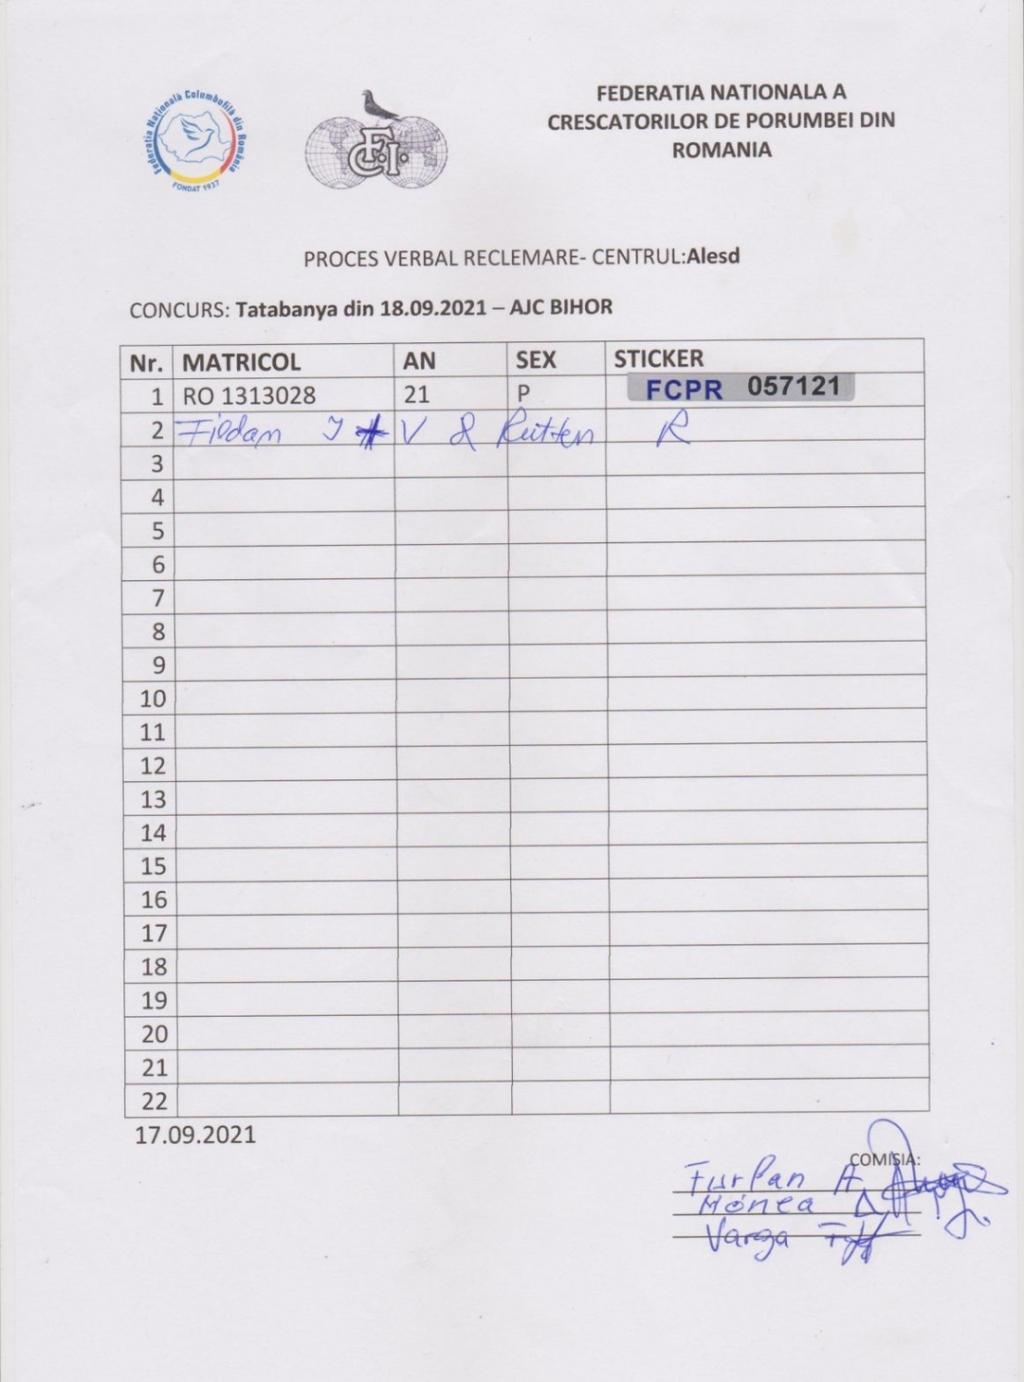 Federatia Natională Columbofilă din România
FONDAT 1937
F.C.I.
FEDERATIA NATIONALA A
CRESCATORILOR DE PORUMBEI DIN
ROMANIA
PROCES VERBAL RECLEMARE- CENTRUL:Alesd
CONCURS: Tatabanya din 18.09.2021 – AJC BIHOR
Nr. MATRICOL AN SEX STICKER
1 RO 1313028 21 P FCPR 057121
2 V & Rutten R
3
4
5
6
7
8
9
10
11
12
13
14
15
16
17
18
19
20
21
22
17.09.2021
COMISIA:
Furlan A
Monea
Varga